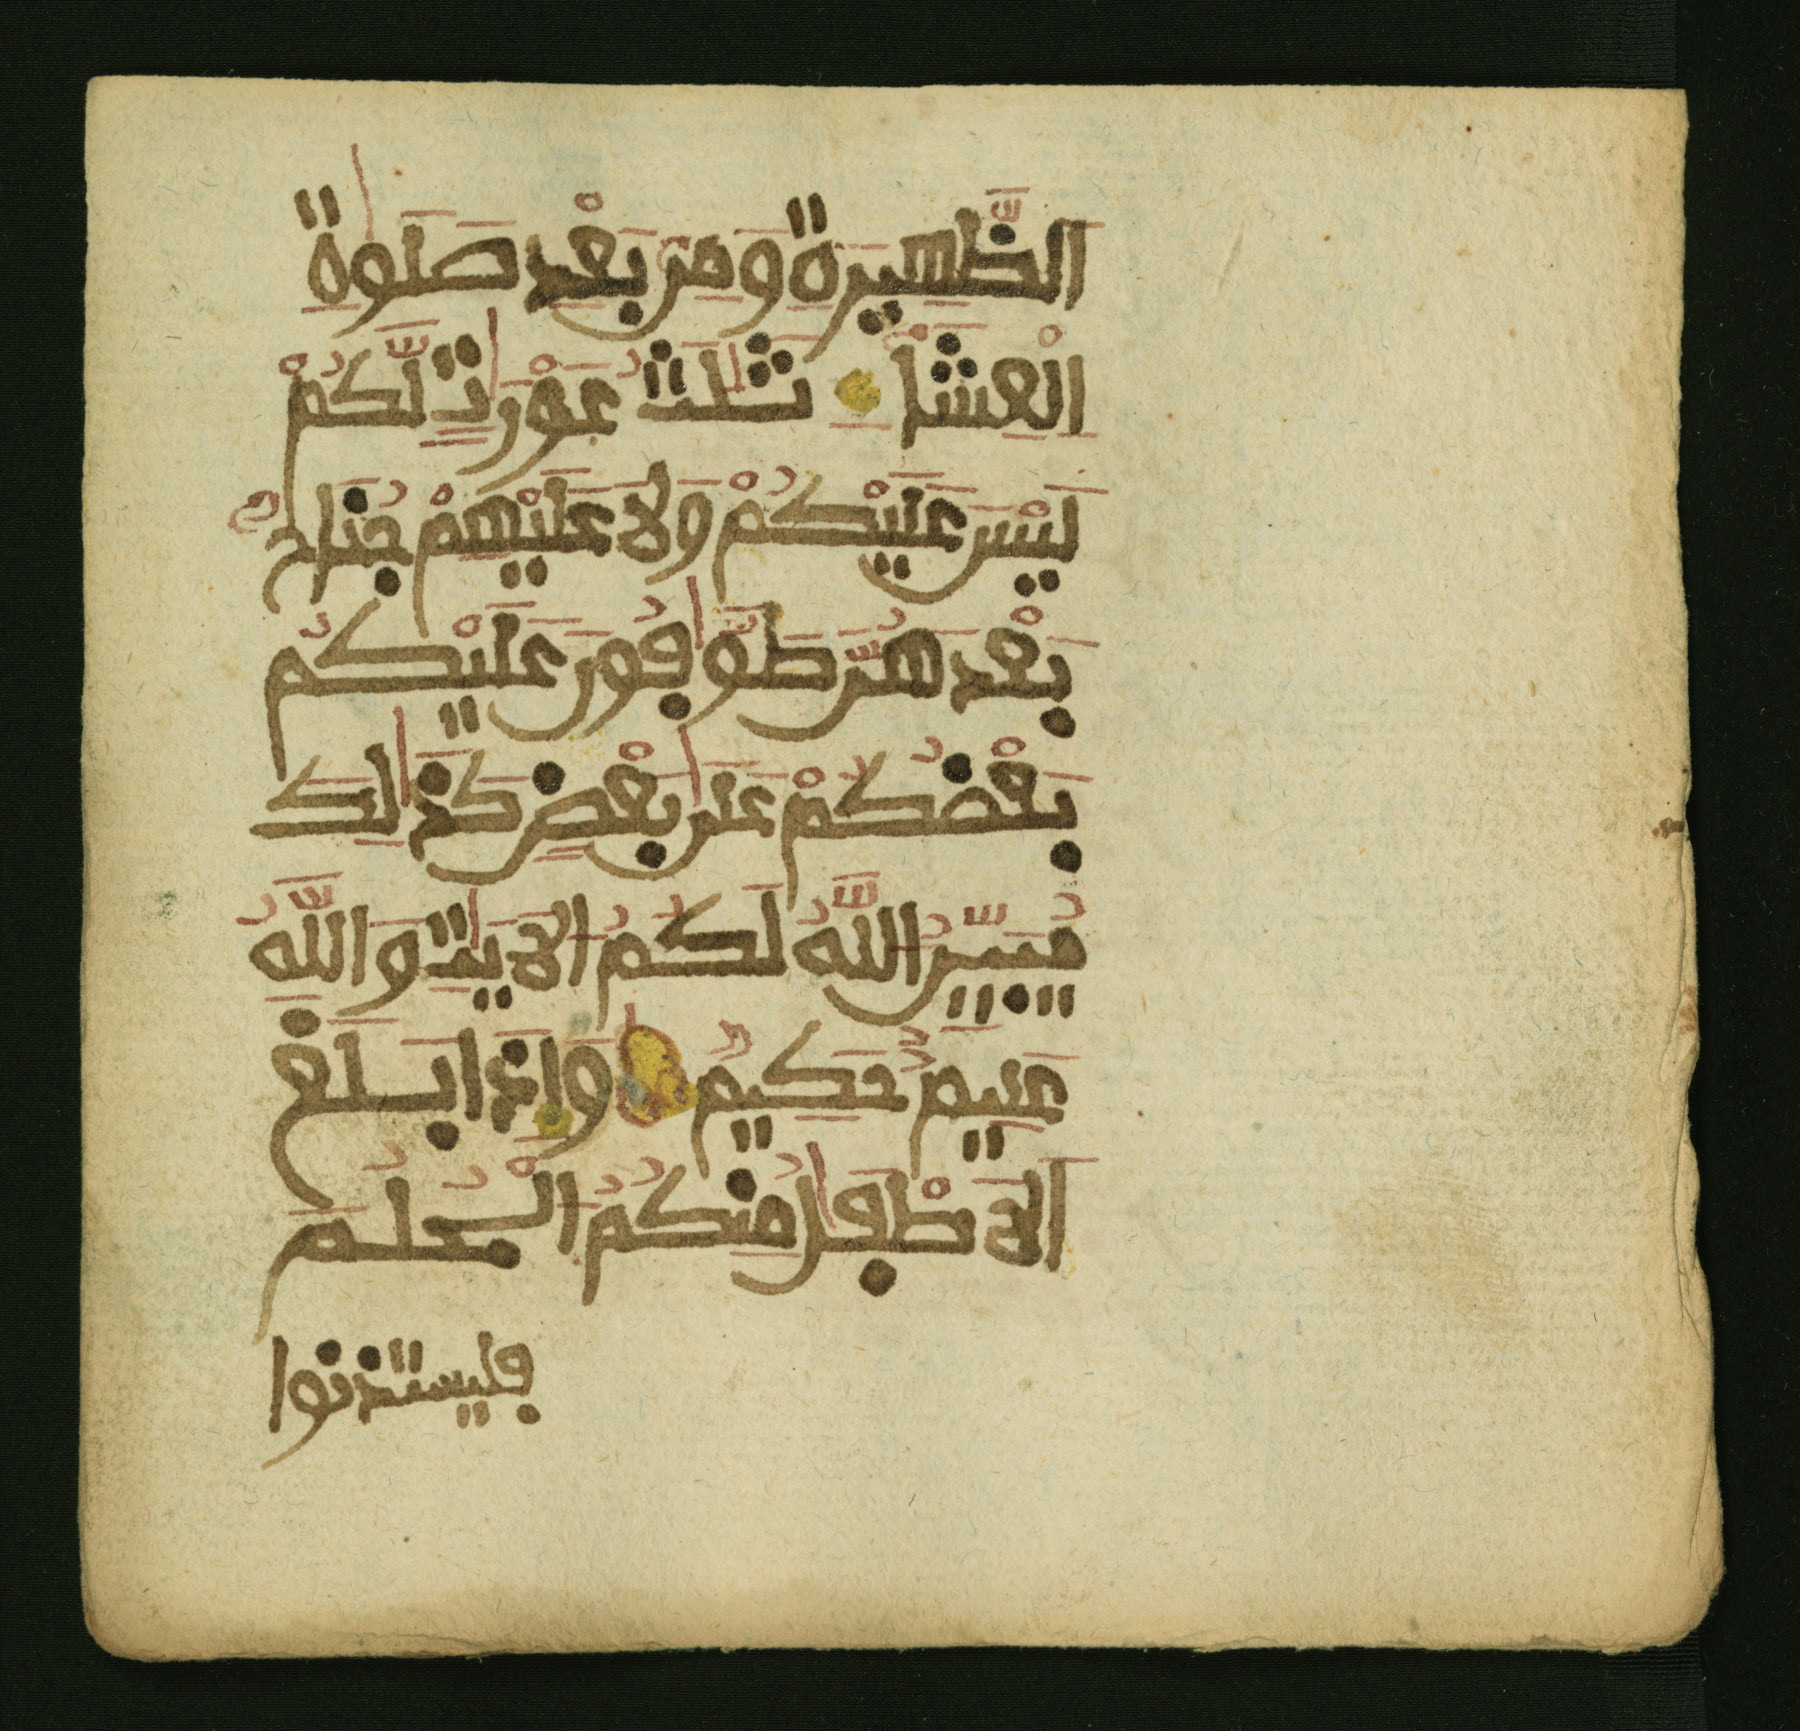 الظَّهِيرَةِ وَمِن بَعْدِ صَلَوٰةِ
الْعِشَاْ ثَلَٰثُ عَوْرَٰتٍ لَّكُمْ
لَيْسَ عَلَيْكُمْ وَلَا عَلَيْهِمْ جُنَاحٌ
بَعْدَ هُنَّ طَوَّٰفُونَ عَلَيْكُم
بَعْضُكُمْ عَلَىٰ بَعْضٍ كَذَٰلِكَ
يُبَيِّنُ اللَّهُ لَكُمُ الْآيَٰتِ وَاللَّهُ
عَلِيمٌ حَكِيمٌ وَإِذَا بَلَغَ
الَاطْفَٰلُ مِنكُمُ الْحُلُمَ
فليستذنوا